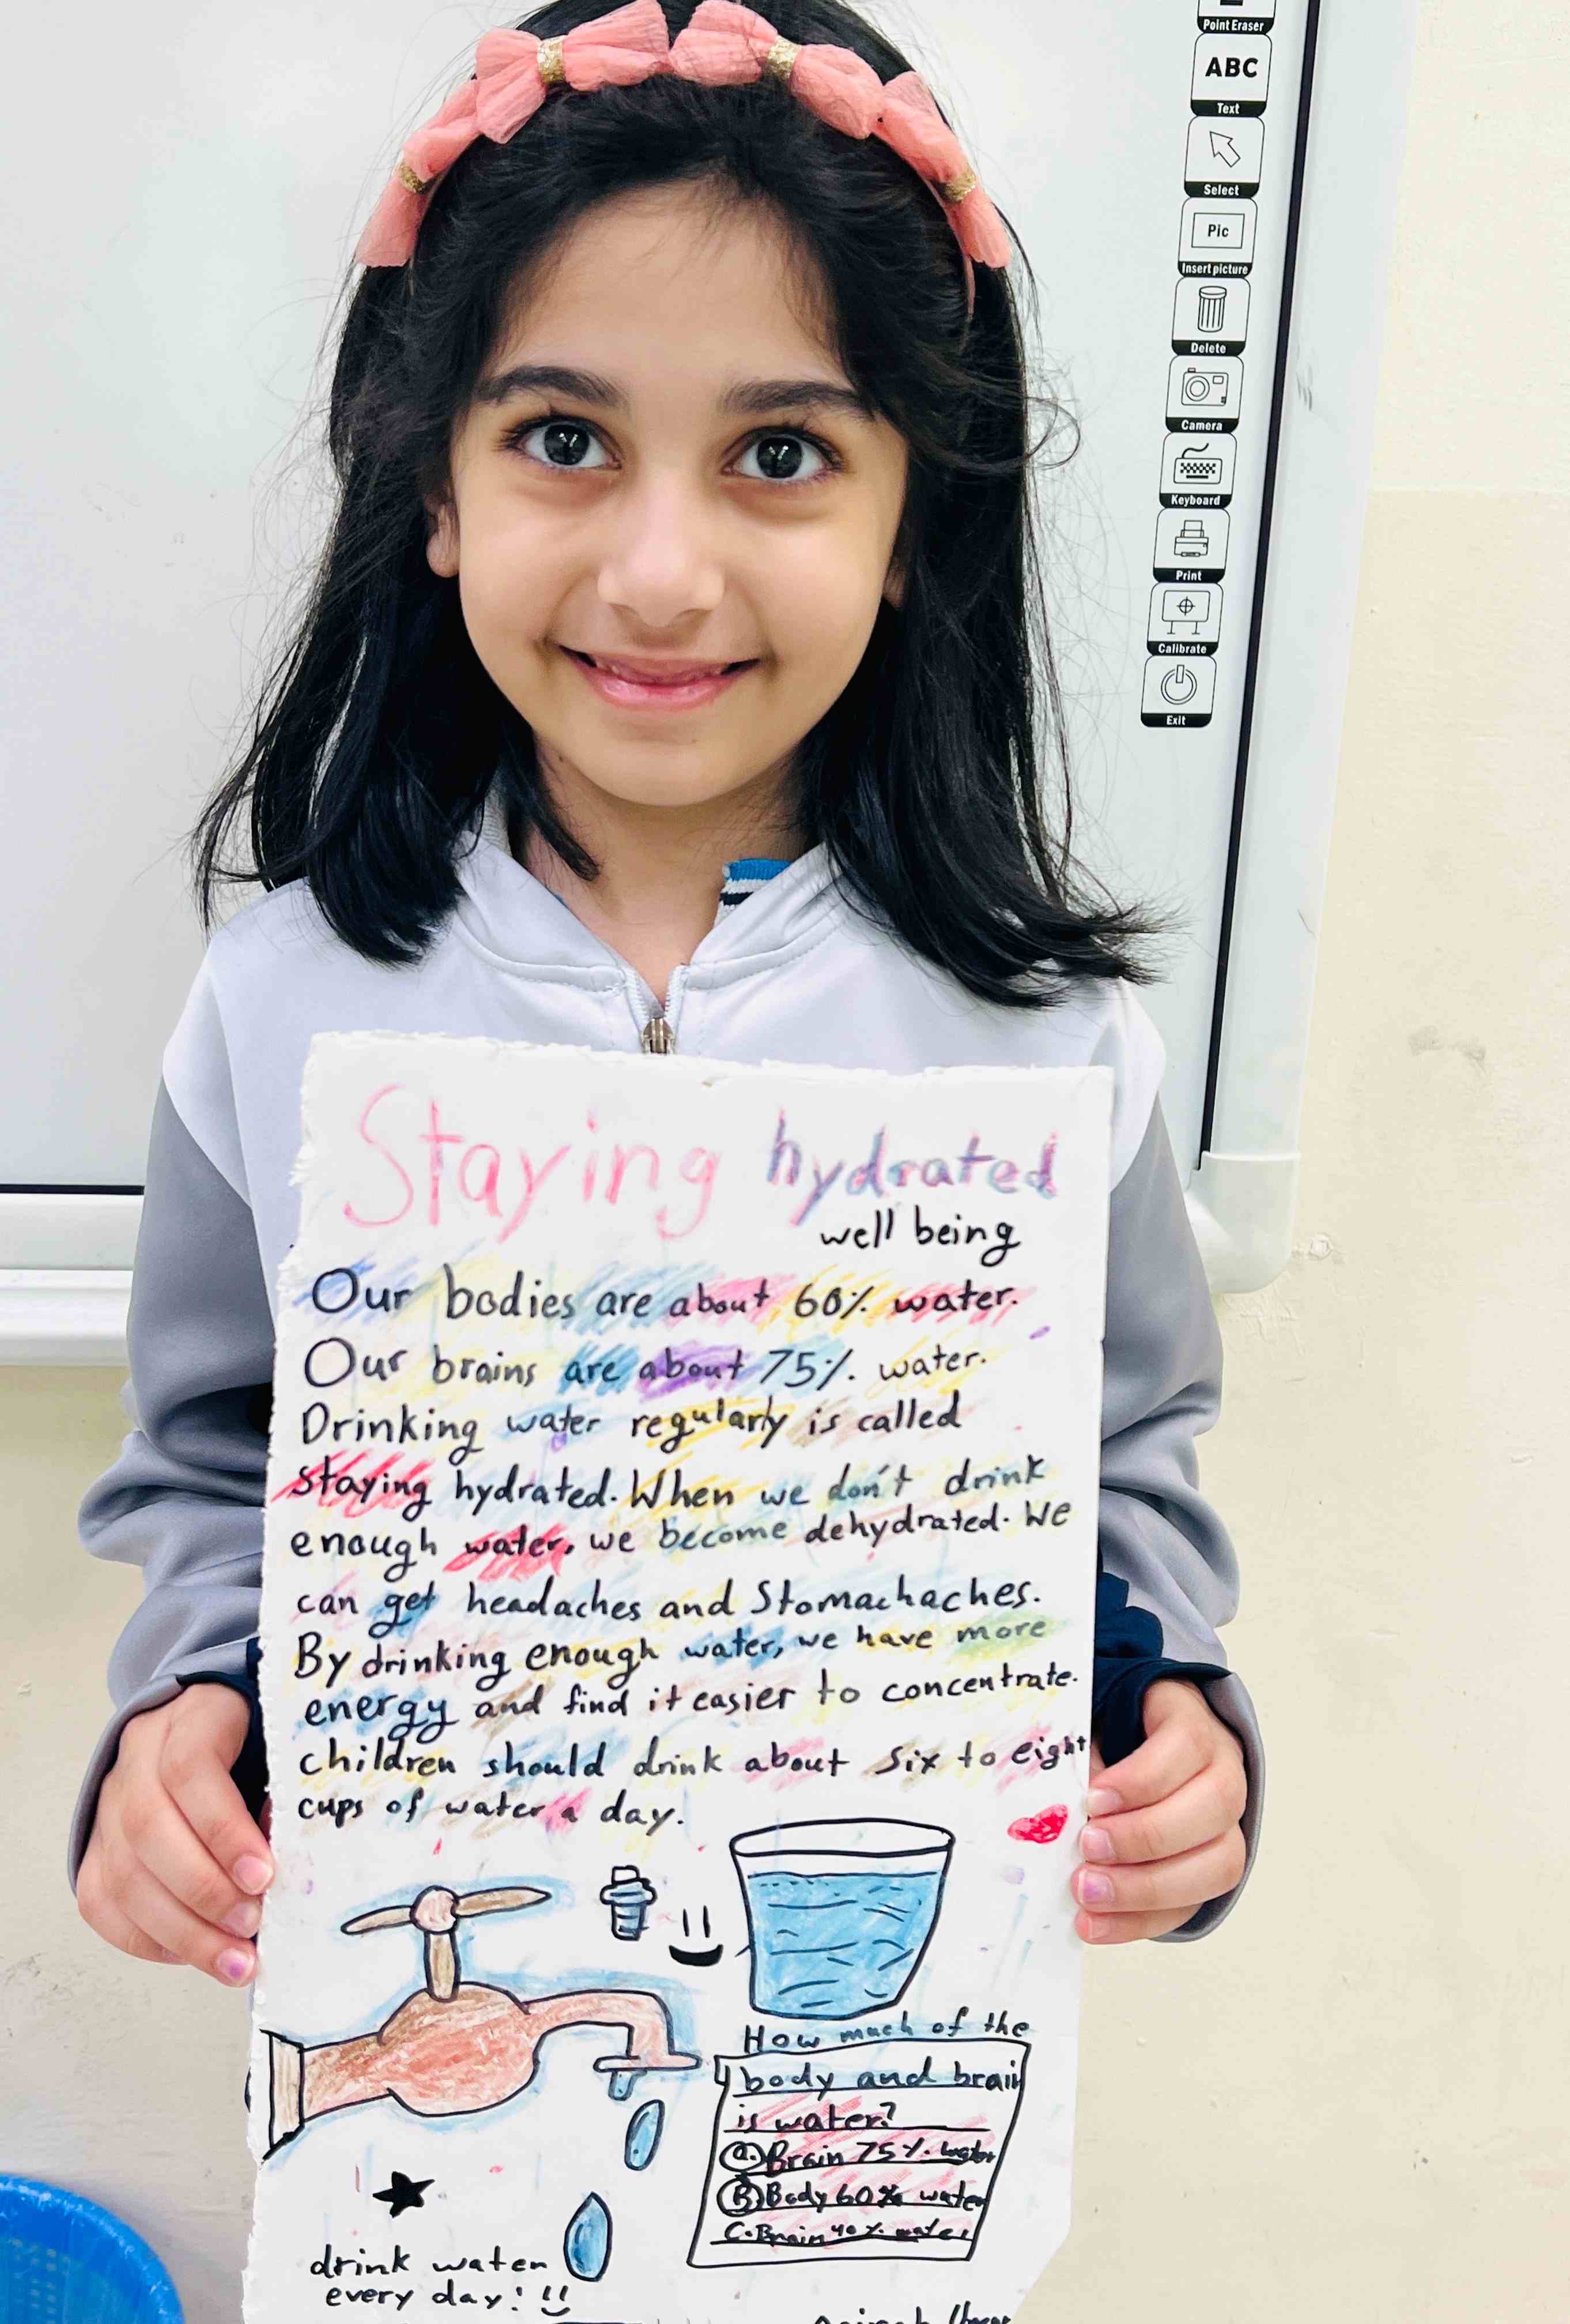 Point Eraser
ABC
Text
Select
Pic
Insert picture
Delete
Camera
Keyboard
Print
Calibrate
Exit
Staying hydrated
well being
Our bodies are about 60% water.
Our brains are about 75%. water.
Drinking water regularly is called
staying hydrated. When we don't drink
enough water, we become dehydrated. We
can get headaches and Stomachaches.
By drinking enough water, we have more
energy and find it easier to concentrate.
children should drink about six to eight
cups of water a day.
How much of the
body and brain
is water?
a. Brain 75%. water
B. Body 60% water
C. Brain 40%. water
drink water
every day!